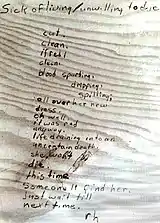 Sick of living / unwilling to die
cut.
clean.
if rich!
clean.
blood spurting.
dripping;
spilling,
all over her new
dress.
oh well
it was red
anyway.
life draining into an
uncertain death.
she won't
die
this time
Someone'll find her.
Just wait till
next time.
rh